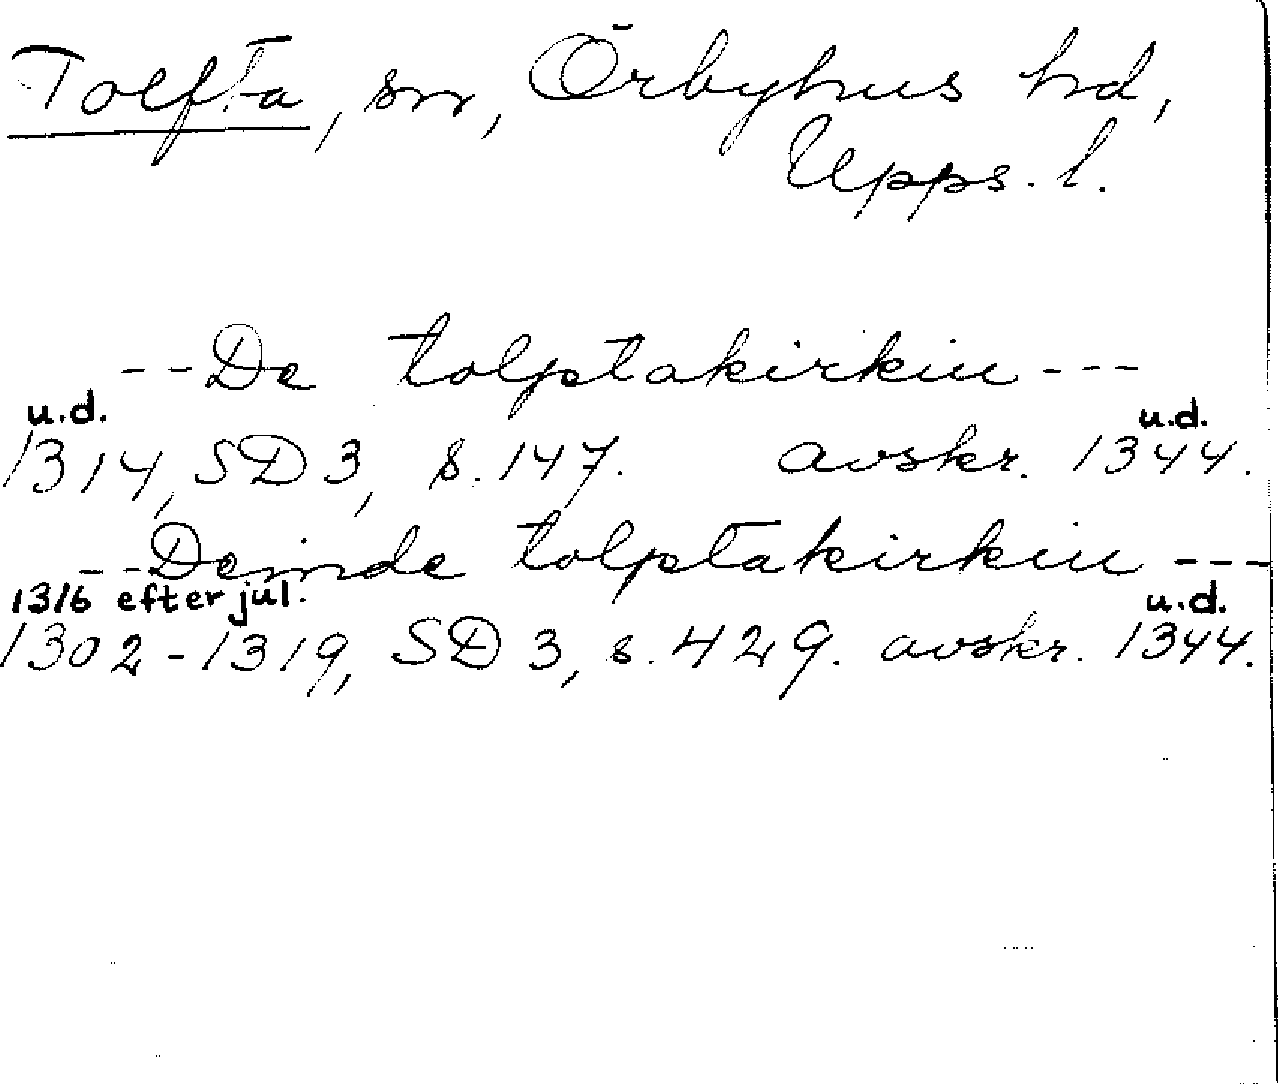 Tolfta, sn, Örbyhus hd,
Upps. l.
--De tolptakirkiu---
u.d. u.d.
1314, SD 3, s. 147. avskr. 1344.
--Deinde tolptakirkiu---
1316 efter jul. u.d.
1302-1319, SD 3, s. 429. avskr. 1344.